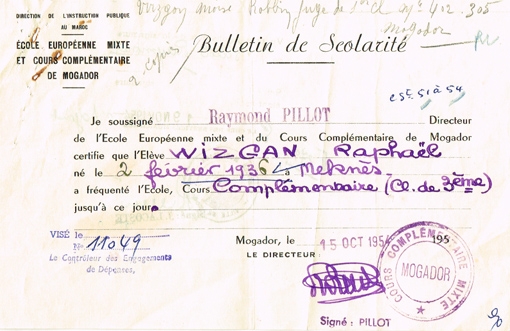 DIRECTION DE L'INSTRUCTION PUBLIQUE
AU MAROC
ÉCOLE EUROPÉENNE MIXTE
ET COURS COMPLÉMENTAIRE
DE MOGADOR
Mogador
2 copies
Bulletin de Scolarité
Je soussigné Raymond PILLOT Directeur
de l'Ecole Européenne mixte et du Cours Complémentaire de Mogador
certifie que l'Elève WIZGAN Raphaël
né le 2 février 1936 à Meknès
a fréquenté l'Ecole, Cours Complémentaire (Cl. de 3ème)
jusqu'à ce jour.
VISÉ le
N° 11049
Le Contrôleur des Engagements
de Dépenses,
Mogador, le 15 OCT 1954 195
LE DIRECTEUR:
COURS COMPLÉMENTAIRE MIXTE
MOGADOR
Signé : PILLOT